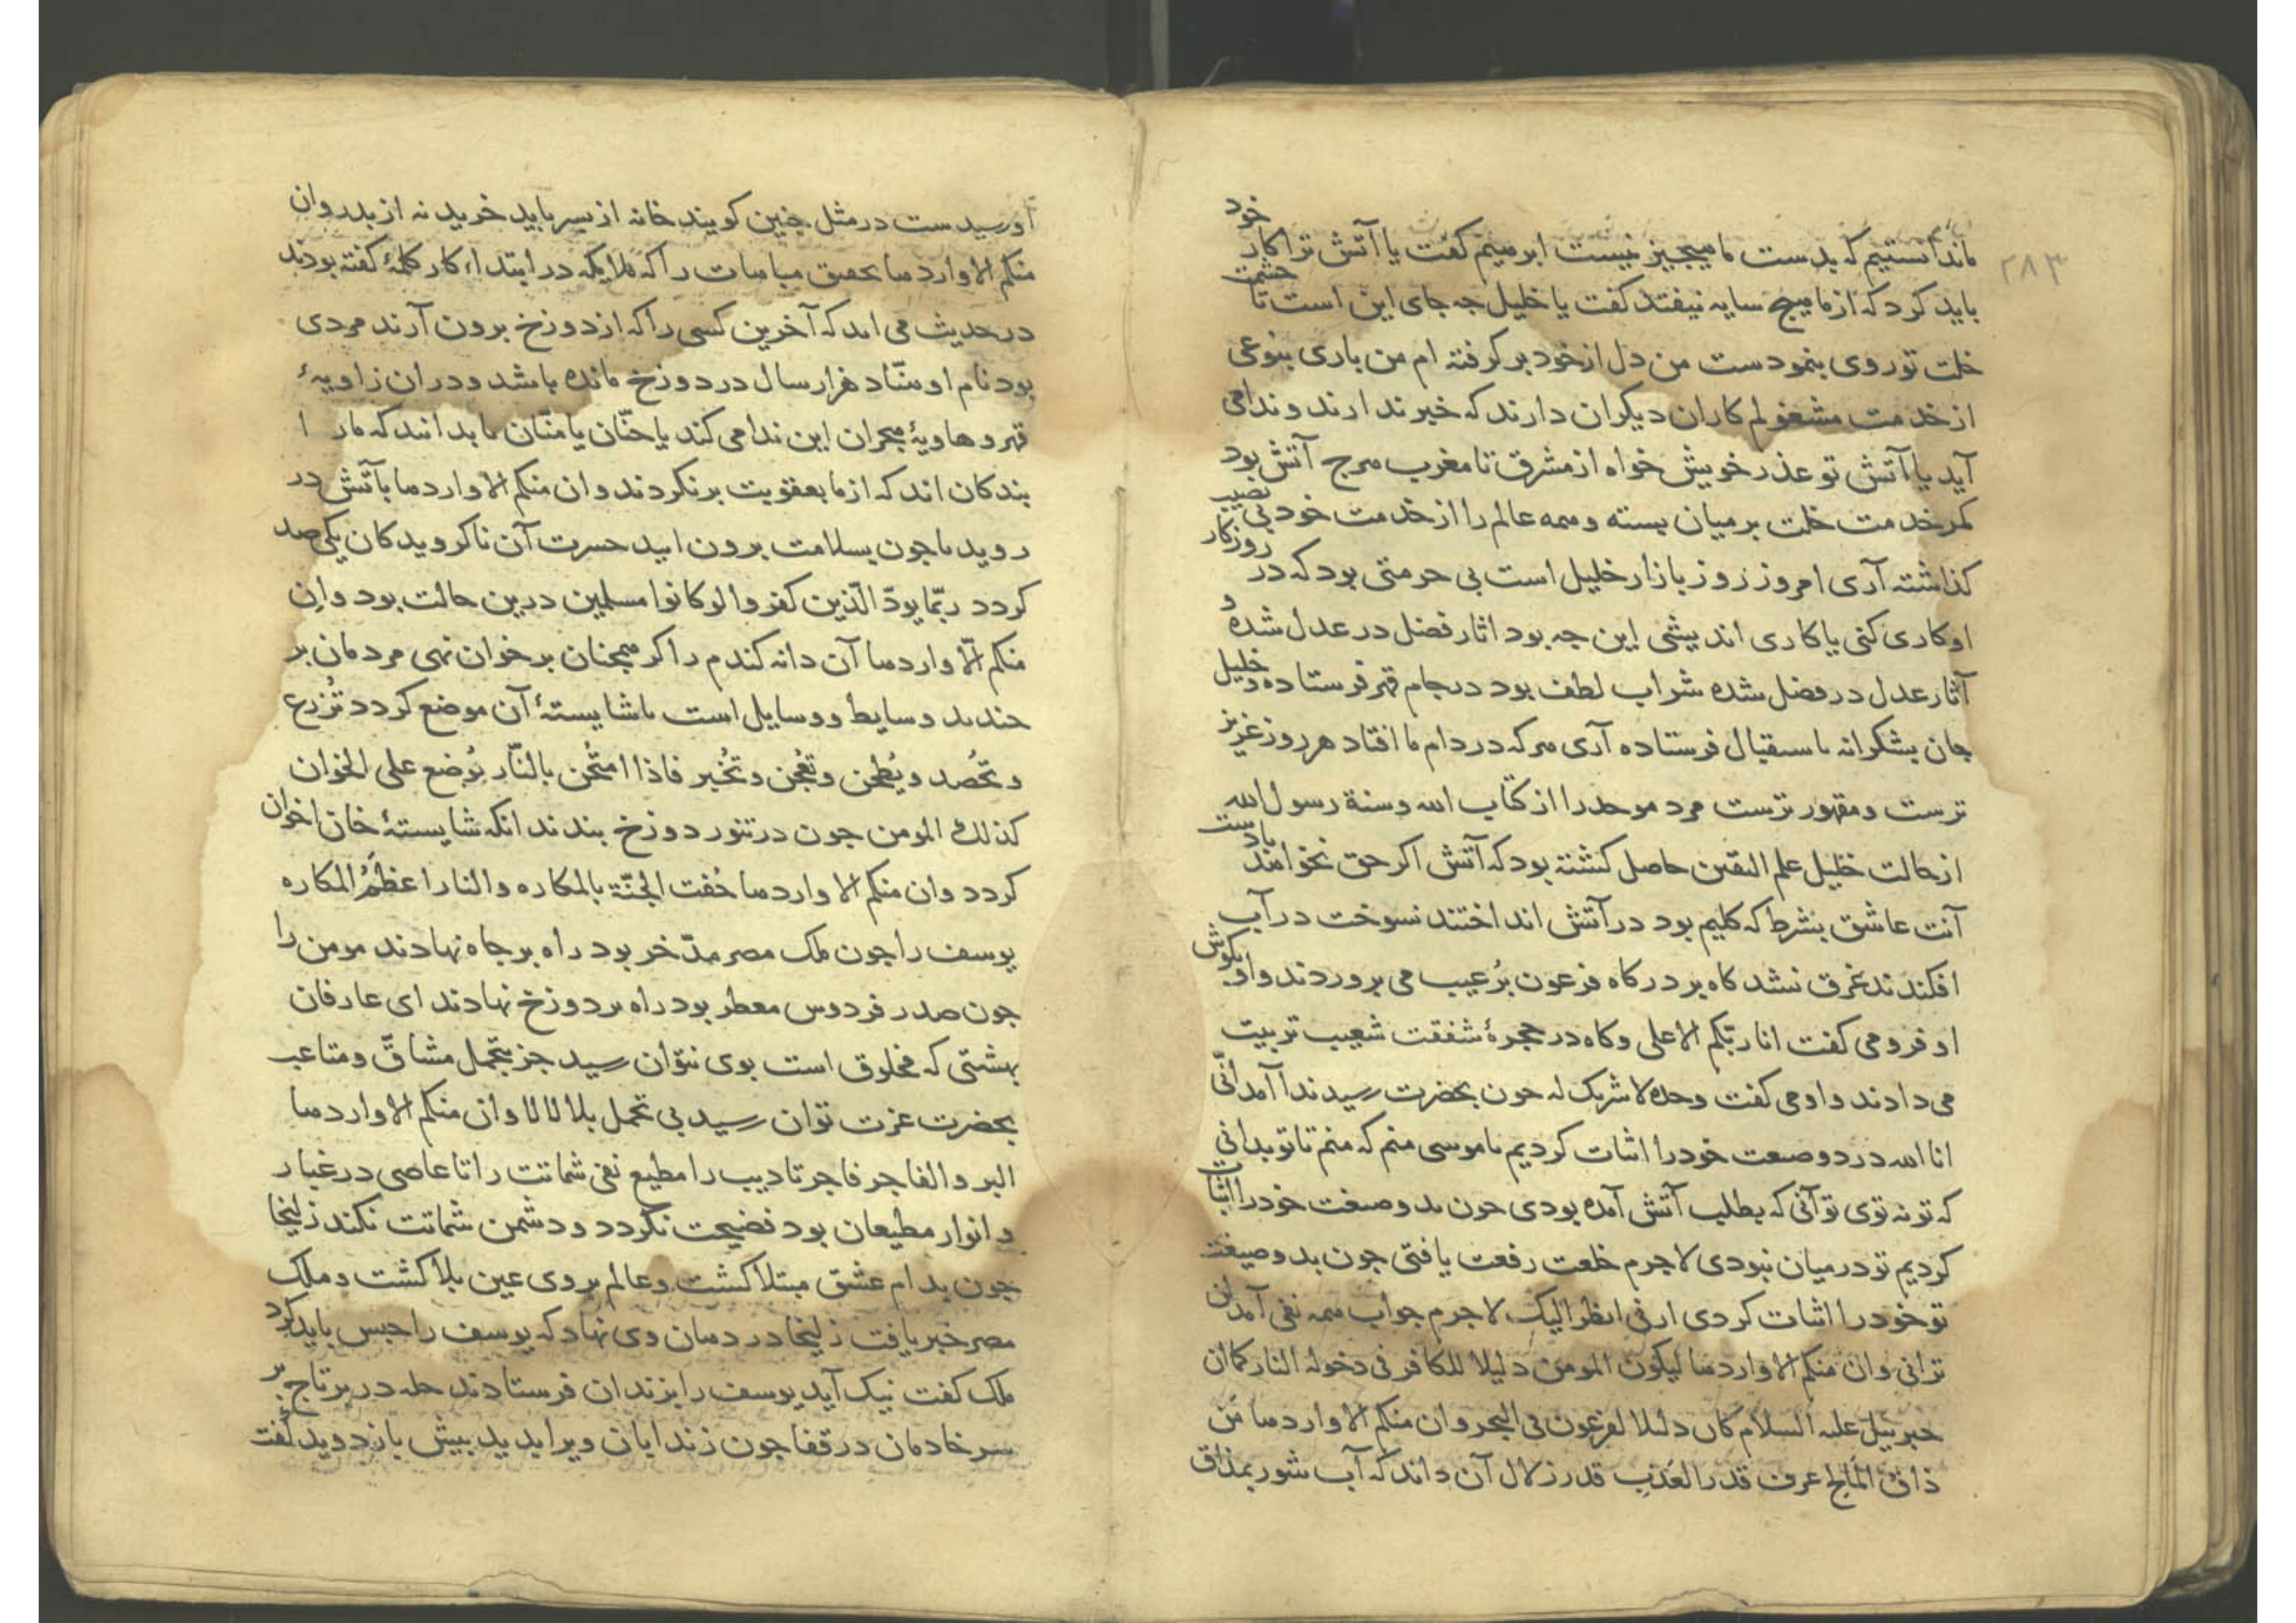 ماندانستیم که بدست ما هیچیز نیست ابرهیم کفت یا آتش ترا کار خود
باید کرد که از ما هیچ سایه نیفتد کفت یا خلیل جه جای این است تا حشمت
خلت تو روی بنمودست من دل از خود بر کرفته ام من باری بنوعی
از خدمت مشغولم کاران دیکران دارند که خبر ندارند و ندا می
آید یا آتش تو عذر خویش خواه از مشرق تا مغرب هرج آتش بود
کمر خدمت خلت بر میان بسته و همه عالم را از خدمت خود بی نصیب
کذاشته آری امروز روز بازار خلیل است بی حرمتی بود که در روزکار
او کاری کنی یا کاری اندیشی این جه بود اثار فضل در عدل شده و
آثار عدل در فضل شده شراب لطف بود در جام قهر فرستاده و خلیل
جان بشکرانه باستقبال فرستاده آری هرکه در دام ما افتاد هر روز عزیز
ترست و مقهور ترست مرد موحد را از کتاب الله و سنة رسول الله
از حالت خلیل علم الیقین حاصل کشته بود که آتش اکر حق نخواهد بادست
آنت عاشق بشرط که کلیم بود در آتش انداختند نسوخت در آب
افکندند غرق نشد کاه بر درکاه فرعون پر عیب می پروردند و او بکوش
او فرو می کفت انا ربّکم الاعلی و کاه در حجرهٔ شفقت شعیب تربیت
می دادند و او می کفت وحده لا شریک له جون بحضرت رسید ندا آمد انّی
انا الله در دو صفت خود را اثبات کردیم یا موسی منم که منم تا تو بدانی
که تو نه توی تو آنی که بطلب آتش آمده بودی جون بدو صفت خود را اثبات
کردیم تو در میان نبودی لا جرم خلعت رفعت یافتی جون بدو صیغت
تو خود را اثبات کردی ارنی انظر الیک لا جرم جواب همه نفی آمد لن
ترانی وان منکم الا واردها لیکون المومن دلیلا للکافر فی دخوله النار کما ان
جبرئیل علیه السلام کان دلیلا لفرعون فی البحر وان منکم الا واردها من
ذاق المالح عرف قدر العذب قدر زلال آن داند که آب شور بمذاق
او رسیدست در مثل جنین کویند خانه از پسر باید خرید نه از پدر وان
منکم الا واردها تحقیق مباهات را که ملایکه در ابتداء کار کلمهٔ کفته بودند
در حدیث می اید که آخرین کسی را که از دوزخ برون آرند مردی
بود نام او هنّاد هزار سال در دوزخ مانده باشد و در ان زاویهٔ
قهر و هاویهٔ هجران این ندا می کند یا حنّان یا منّان تا بدانند که مارا
بندکان اند که از ما بعقوبت برنکردند وان منکم الا واردها بآتش در
روید تا جون بسلامت برون ایید حسرت آن ناکرویدکان یکی صد
کردد ربّما یودّ الّذین کفروا لو کانوا مسلمین درین حالت بود وان
منکم الّا واردها آن دانه کندم را اکر همجنان بر خوان نهی مردمان بر
خندند وسایط و وسایل است تا شایستهٔ آن موضع کردد تُزرع
و تُحصد و یُطحن و تُعجن و تُخبز فاذا امتُحن بالنّار یُوضع علی الخوان
کذلک المومن جون در تنور دوزخ بندند انکه شایستهٔ خان اخوان
کردد وان منکم الا واردها حُفت الجنّة بالمکاره والنار اعظمُ المکاره
یوسف را جون ملک مصر مدّخر بود راه بر جاه نهادند مومن را
جون صدر فردوس معطر بود راه بر دوزخ نهادند ای عارفان
بهشتی که مخلوق است بوی نتوان رسید جز بتحمل مشاقّ و متاعب
بحضرت عزت توان رسید بی تحمل بلا لا لا لا وان منکم الا واردها
البر و الفاجر فاجر تادیب را مطیع نفی شماتت را تا عاصی در غبار
و انوار مطیعان بود فضیحت نکردد و دشمن شماتت نکند زلیخا
جون بدام عشق مبتلا کشت و عالم بروی عین بلا کشت و ملک
مصر خبر یافت زلیخا در دهان وی نهاد که یوسف را حبس باید کرد
ملک کفت نیک آید یوسف را بزندان فرستادند حله در بر تاج بر
سر خادمان در قفا جون زندابان ویرا بدید پیش باز دوید کفت
۲۸۳